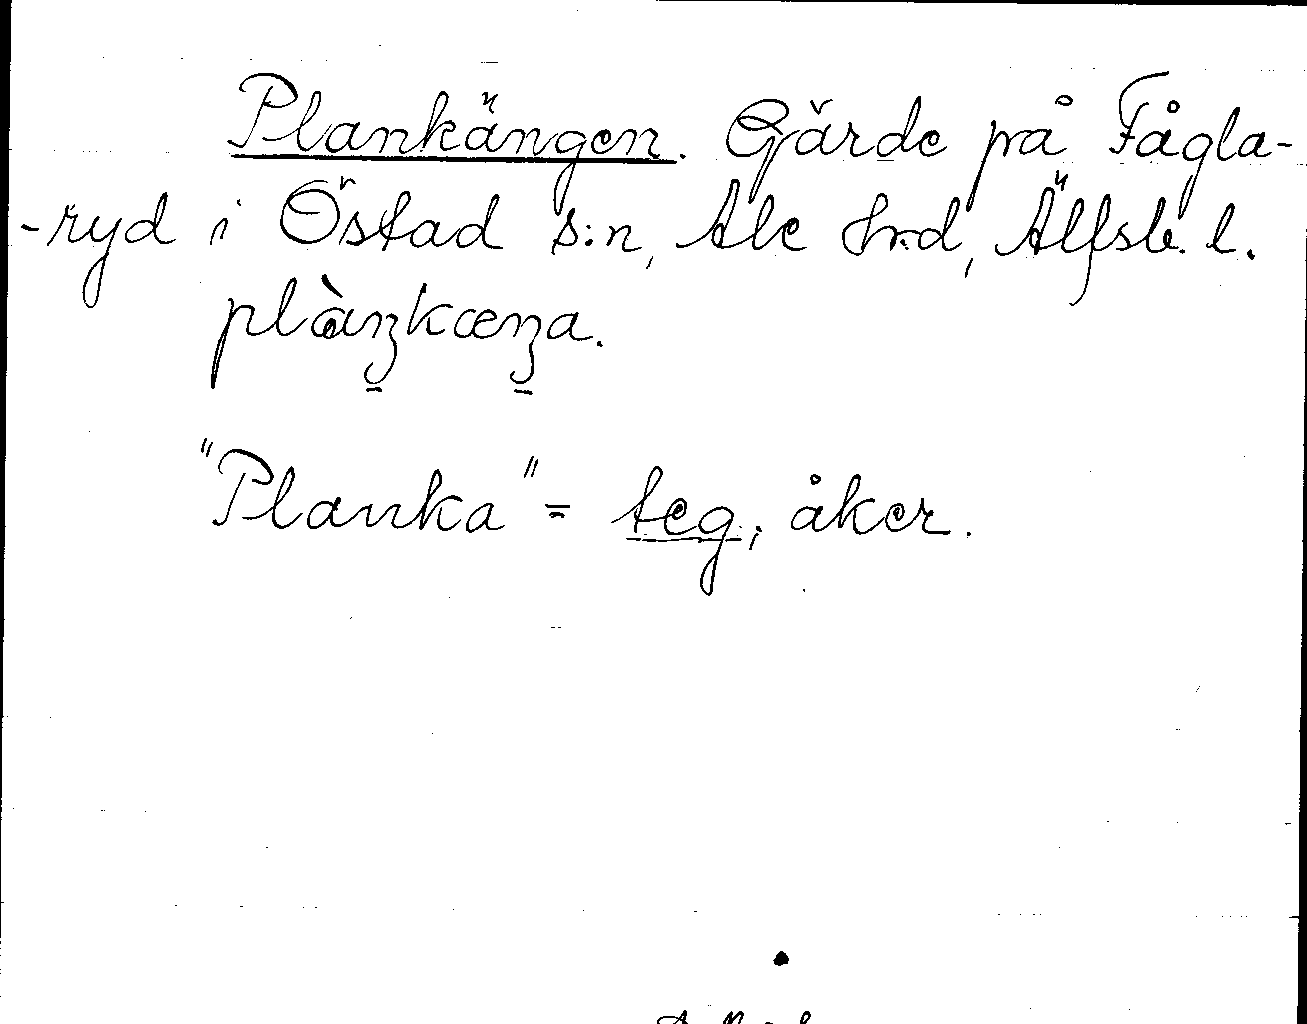 Plankängen. Gärde på Fågla-
-ryd i Östad s:n, Ale hrd, Älfsb. l.
plàŋkæŋa.
"Planka" = teg, åker.